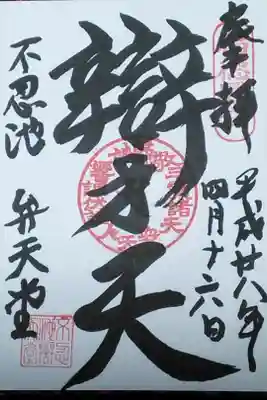 奉拝
平成廿八年
四月十六日
辯才天
不忍池
弁天堂